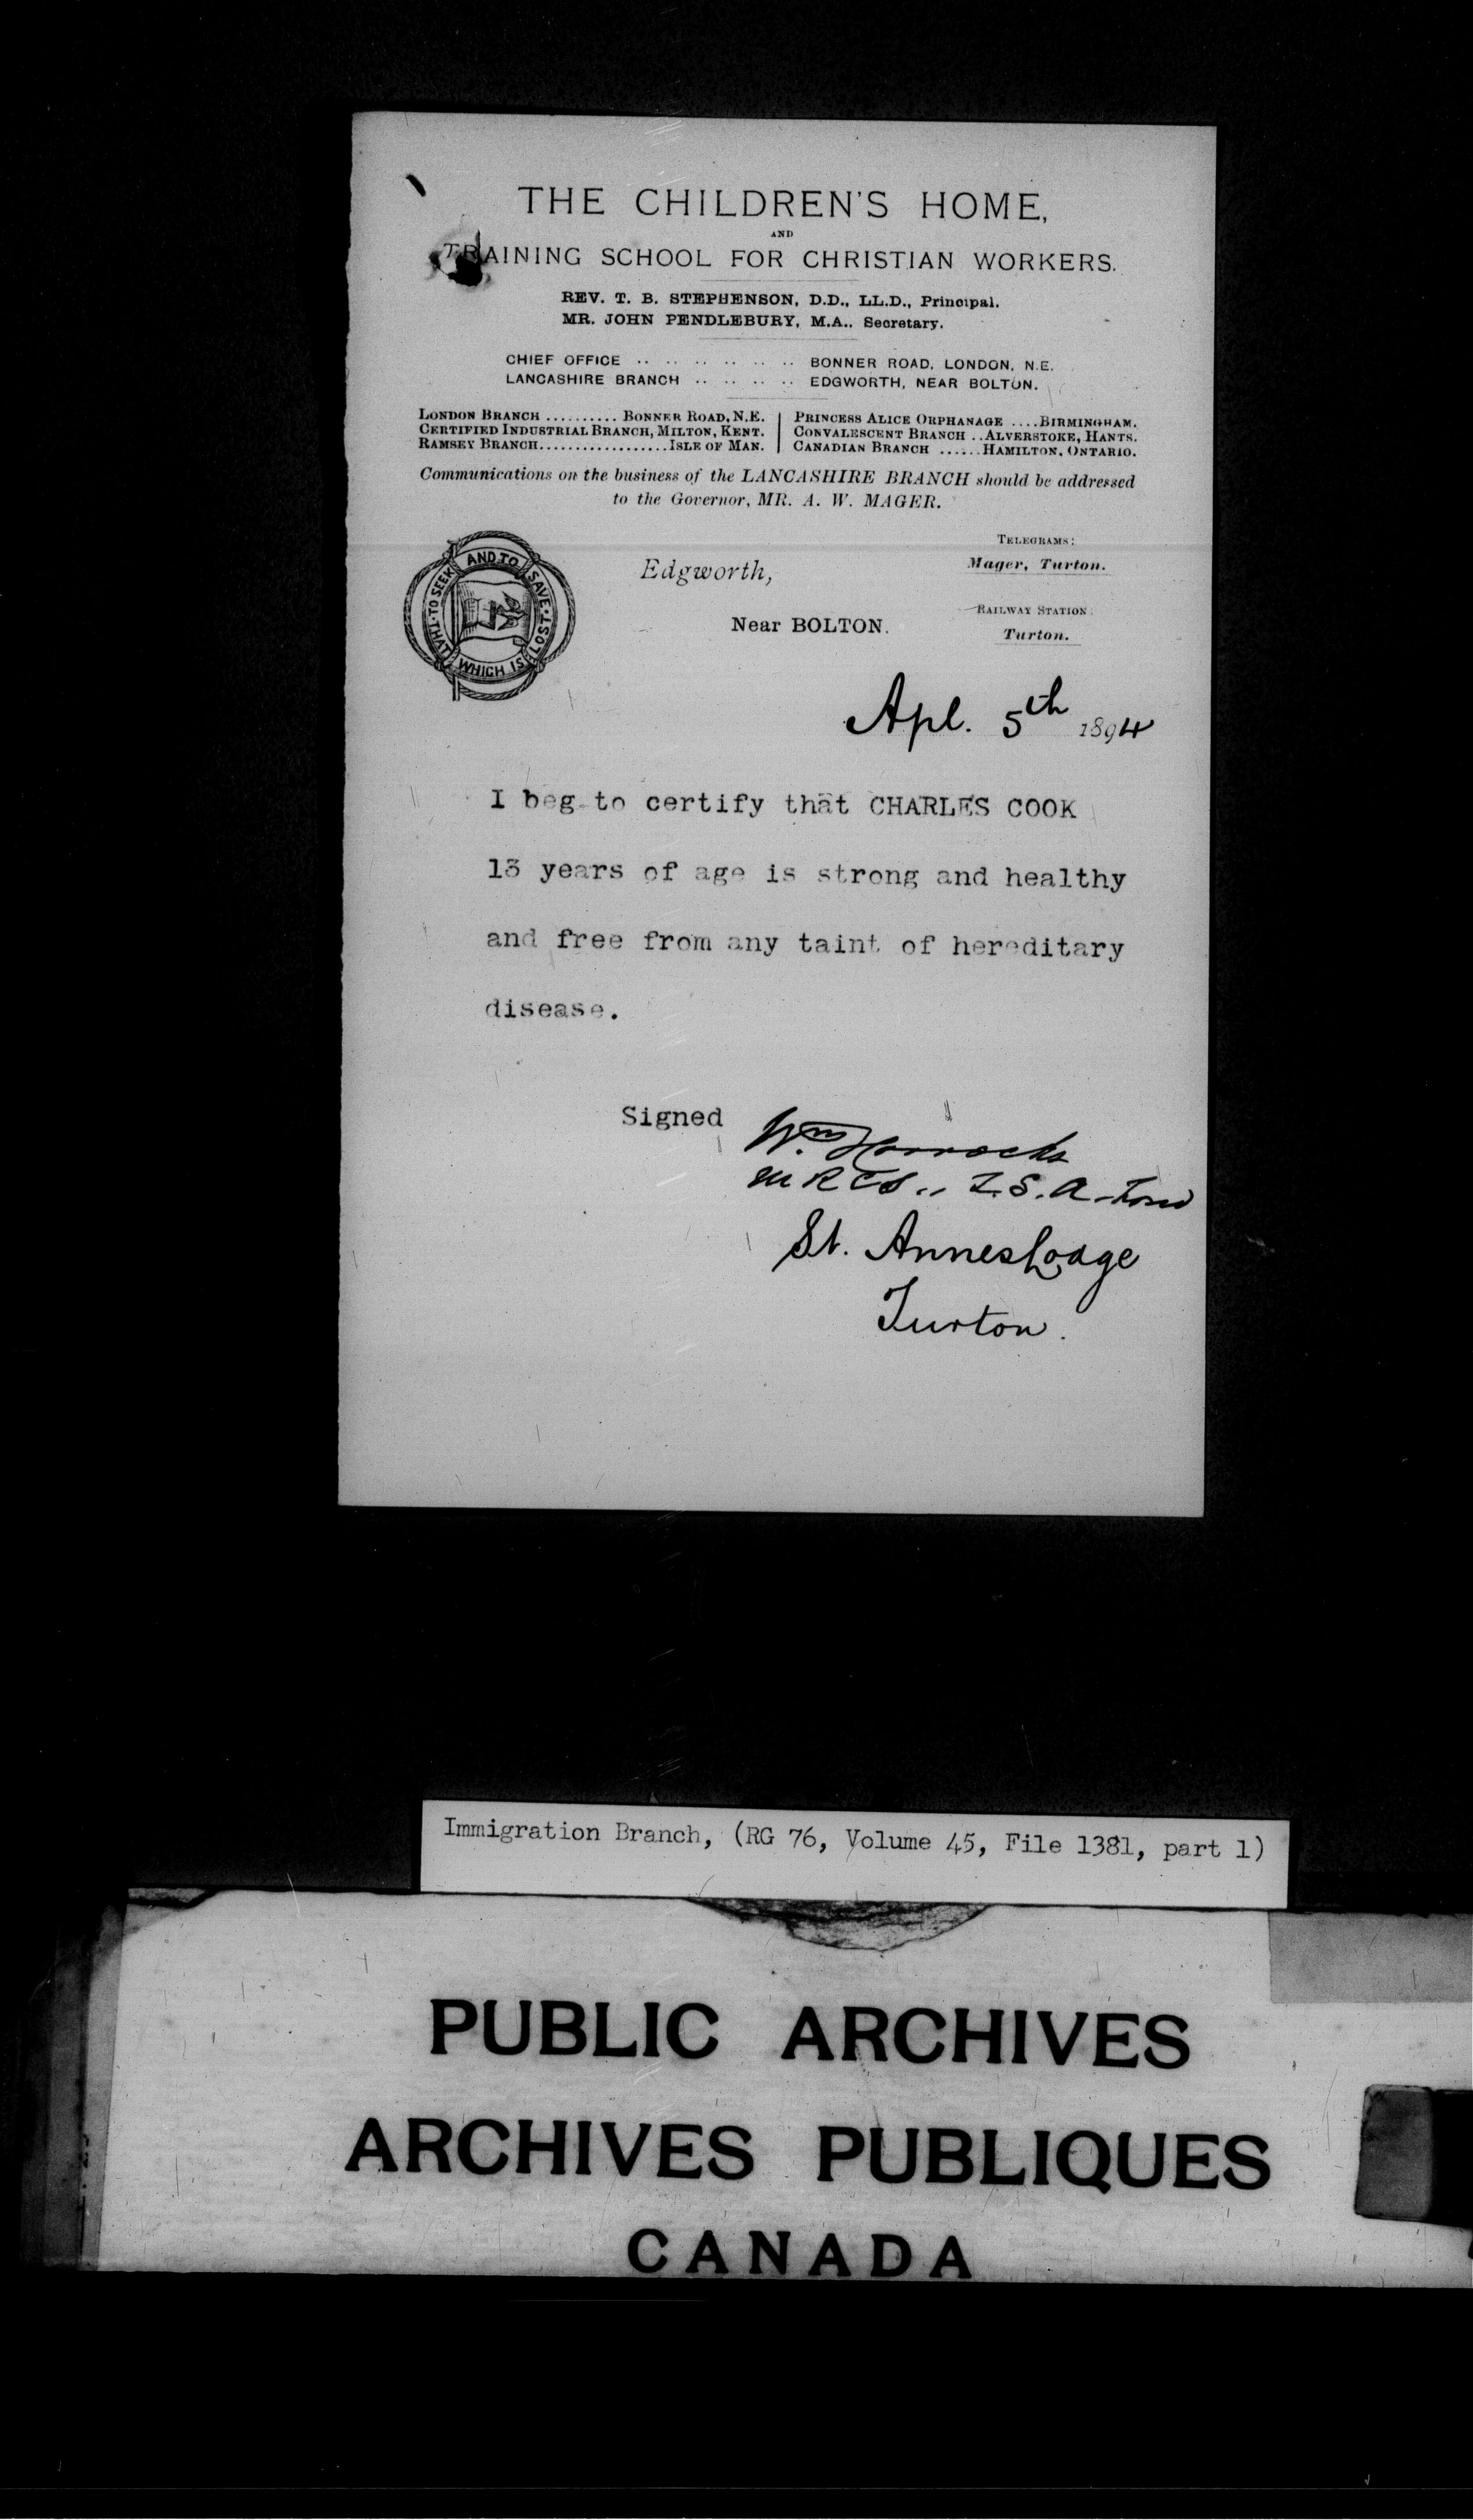 THE CHILDREN'S HOME,
AND
TRAINING SCHOOL FOR CHRISTIAN WORKERS.
REV. T. B. STEPHENSON, D.D., LL.D., Principal.
MR. JOHN PENDLEBURY, M.A., Secretary.
CHIEF OFFICE .. .. .. .. .. .. .. BONNER ROAD, LONDON, N.E.
LANCASHIRE BRANCH .. .. .. .. EDGWORTH, NEAR BOLTON.
LONDON BRANCH .......... BONNER ROAD, N.E.
CERTIFIED INDUSTRIAL BRANCH, MILTON, KENT.
RAMSEY BRANCH.................. ISLE OF MAN.
PRINCESS ALICE ORPHANAGE .... BIRMINGHAM.
CONVALESCENT BRANCH .. ALVERSTOKE, HANTS.
CANADIAN BRANCH ...... HAMILTON, ONTARIO.
Communications on the business of the LANCASHIRE BRANCH should be addressed
to the Governor, MR. A. W. MAGER.
AND TO SEEK AND TO SAVE THAT WHICH IS LOST
TELEGRAMS:
Mager, Turton.
Edgworth,
RAILWAY STATION:
Near BOLTON.
Turton.
Apl. 5th 1894
I beg to certify that CHARLES COOK
13 years of age is strong and healthy
and free from any taint of hereditary
disease.
Signed Wm Horrocks
MRCS., L.S.A. Lond
St. Annes Lodge
Turton.
Immigration Branch, (RG 76, Volume 45, File 1381, part 1)
PUBLIC ARCHIVES
ARCHIVES PUBLIQUES
CANADA